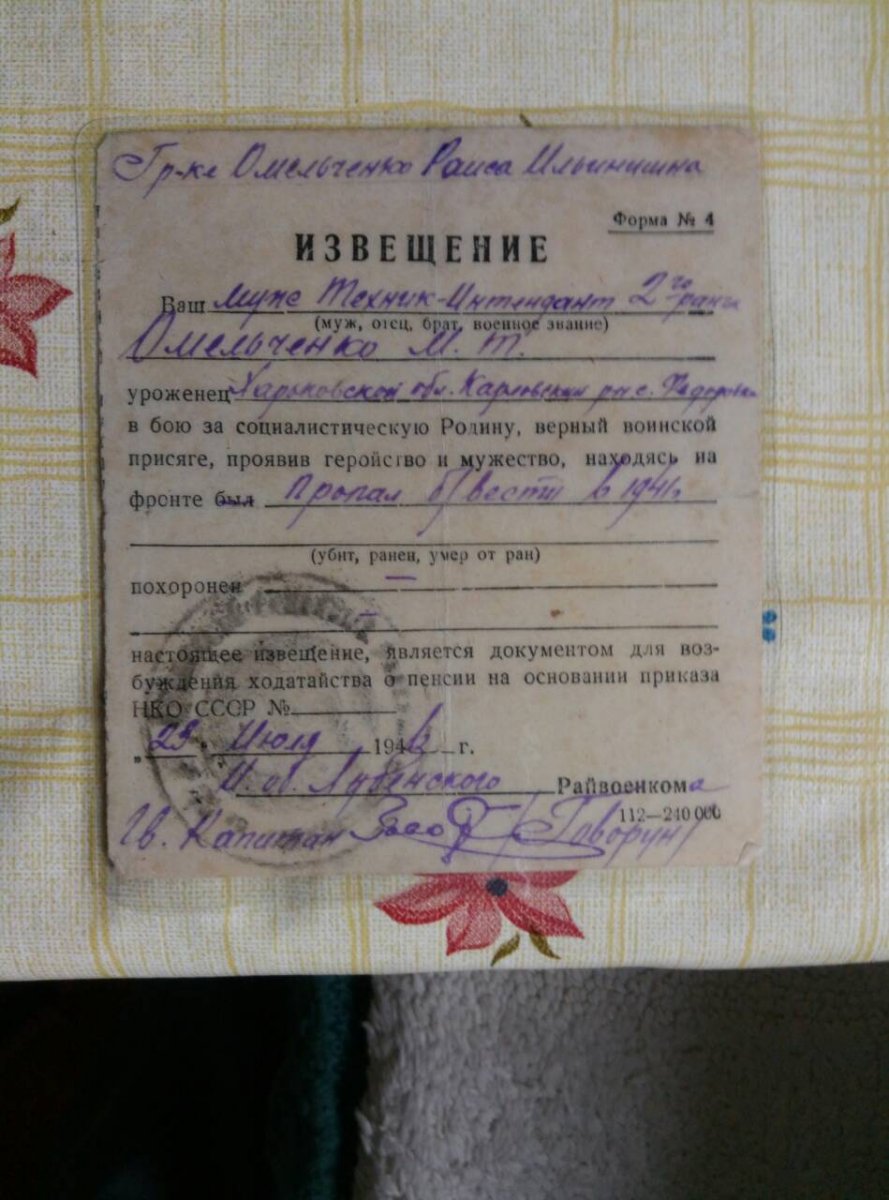 Гр-ке Омельченко Раиса Ильинишна
Форма № 4
ИЗВЕЩЕНИЕ
Ваш муж Техник-Интендант 2го ранга
(муж, отец, брат, военное звание)
Омельченко М. Т.
уроженец Харьковской обл. Карловский р-н с. Федоровка
в бою за социалистическую Родину, верный воинской
присяге, проявив геройство и мужество, находясь на
фронте был пропал б/вести в 1941г.
(убит, ранен, умер от ран)
похоронен —
настоящее извещение, является документом для воз-
буждения ходатайства о пенсии на основании приказа
НКО СССР №
„25" Июля 1946 г.
И. об. Райвоенкома
112—240 000
Гв. Капитан /Говорун/